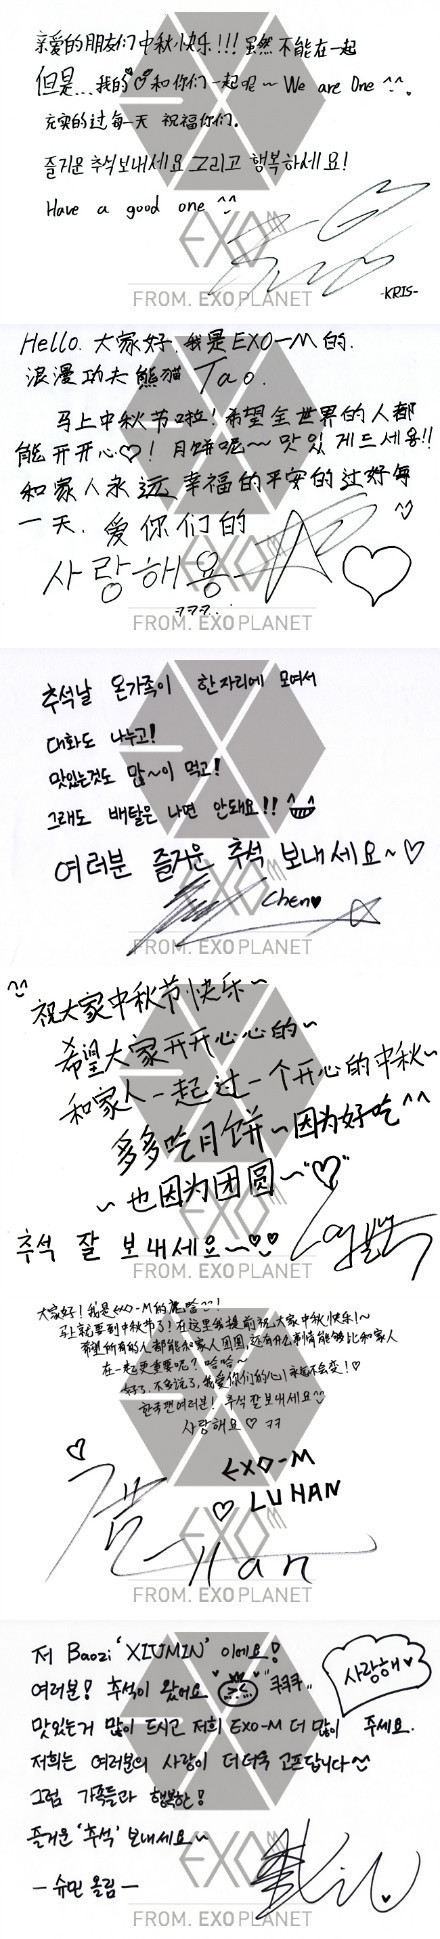 亲爱的朋友们中秋快乐!!! 虽然不能在一起
但是... 我的♡和你们一起呢~ We are One ^^.
充实的过每一天 祝福你们.
즐거운 추석보내세요 그리고 행복하세요!
Have a good one ^^
EXO M
-KRIS-
FROM. EXOPLANET
Hello. 大家好. 我是EXO-M的.
浪漫功夫熊猫 Tao.
马上中秋节啦! 希望全世界的人都
能开开心♡! 月饼呢~ 맛있게드세용!!
和家人永远幸福的平安的过好每
一天. 爱你们的
사랑해용-
ㅋㅋㅋ..
FROM. EXOPLANET
추석날 온가족이 한자리에 모여서
대화도 나누고!
맛있는것도 많~이 먹고!
그래도 배탈은 나면 안돼요!! ^^
여러분 즐거운 추석 보내세요~♡
Chen♥
EXO M
FROM. EXOPLANET
^^ 祝大家中秋节快乐~
希望大家开开心心的~
和家人一起过一个开心的中秋~
多多吃月饼~因为好吃^^
~也因为团圆~"♡"
추석 잘 보내세요~♡♡
Lay
FROM. EXOPLANET
大家好! 我是EXO-M的鹿晗^^!
马上就要到中秋节了! 在这里我提前祝大家中秋快乐!~
希望所有的人都能和家人团圆, 还有什么事情能够比和家人
在一起更重要呢? 哈哈~
好了, 不多说了, 我爱你们的心永远不会变! ♡
한국팬여러분! 추석잘보내세요^^
사랑해요♡ ㅋㅋ
EXO-M
♡ LUHAN
EXO M
Han
FROM. EXOPLANET
저 Baozi 'XIUMIN' 이에요!
여러분! 추석이 왔어요 "ㅋㅋㅋ"
사랑해♥
맛있는거 많이 드시고 저희 EXO-M 더 많이 주세요.
저희는 여러분의 사랑이 더더욱 고프답니다^^
그럼 가족들과 행복한!
즐거운 '추석' 보내세요~
EXO M
— 슈민 올림 —
FROM. EXOPLANET